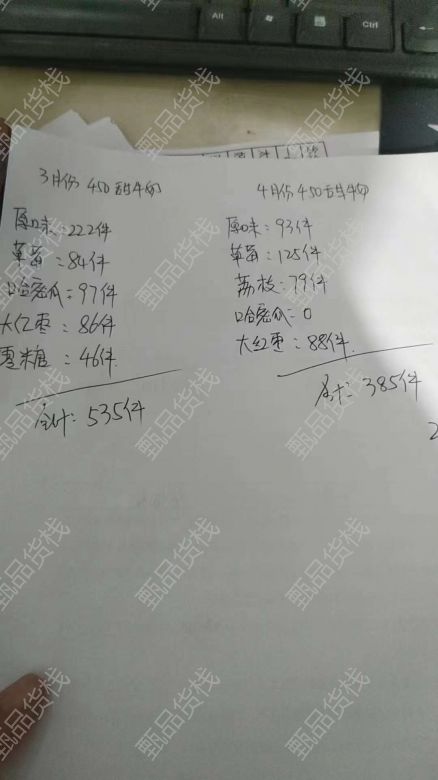 Alt
Ctrl
3月份 450甜牛奶
原味:222件
草莓:84件
哈密瓜:97件
大红枣:86件
枣米糖:46件
合计:535件
4月份 450甜牛奶
原味:93件
草莓:125件
荔枝:79件
哈密瓜:0
大红枣:88件
合计:385件
甄品货栈